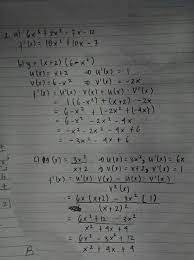 2. a) 6x³ + 5x² - 7x - 12
f'(x) = 18x² + 10x - 7
b) y = (x+2) (6-x²)
u(x) = x+2 ⇒ u'(x) = 1
v(x) = 6-x² ⇒ v'(x) = -2x
f'(x) = u'(x) · v(x) + u(x) · v'(x)
= 1 (6-x²) + (x+2) -2x
= 6-x² + (-2x² + (-4x))
= 6-x² - 2x² - 4x
= -x² - 2x² - 4x + 6
= -3x² - 4x + 6
c) f(x) = 3x² / x+2 ⇒ u(x) = 3x², u'(x) = 6x
⇒ v(x) = x+2, v'(x) = 1
f'(x) = u'(x) · v(x) - u(x) · v'(x)
v²(x)
= 6x (x+2) - 3x² (1)
(x+2)²
= 6x² + 12 - 3x²
x² + 4x + 4
= 6x² - 3x² + 12
x² + 4x + 4
B.